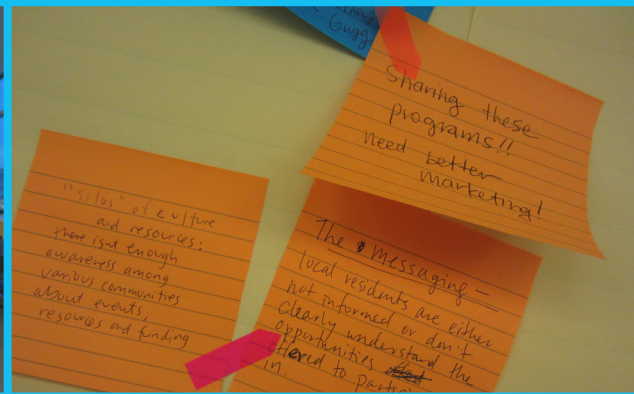 Gugg
Sharing these
programs!!
need better
marketing!
"silos" of culture
and resources:
there isn't enough
awareness among
various communities
about events,
resources and funding
The messaging –
local residents are either
not informed or don't
clearly understand the
opportunities
offered to partici
in.